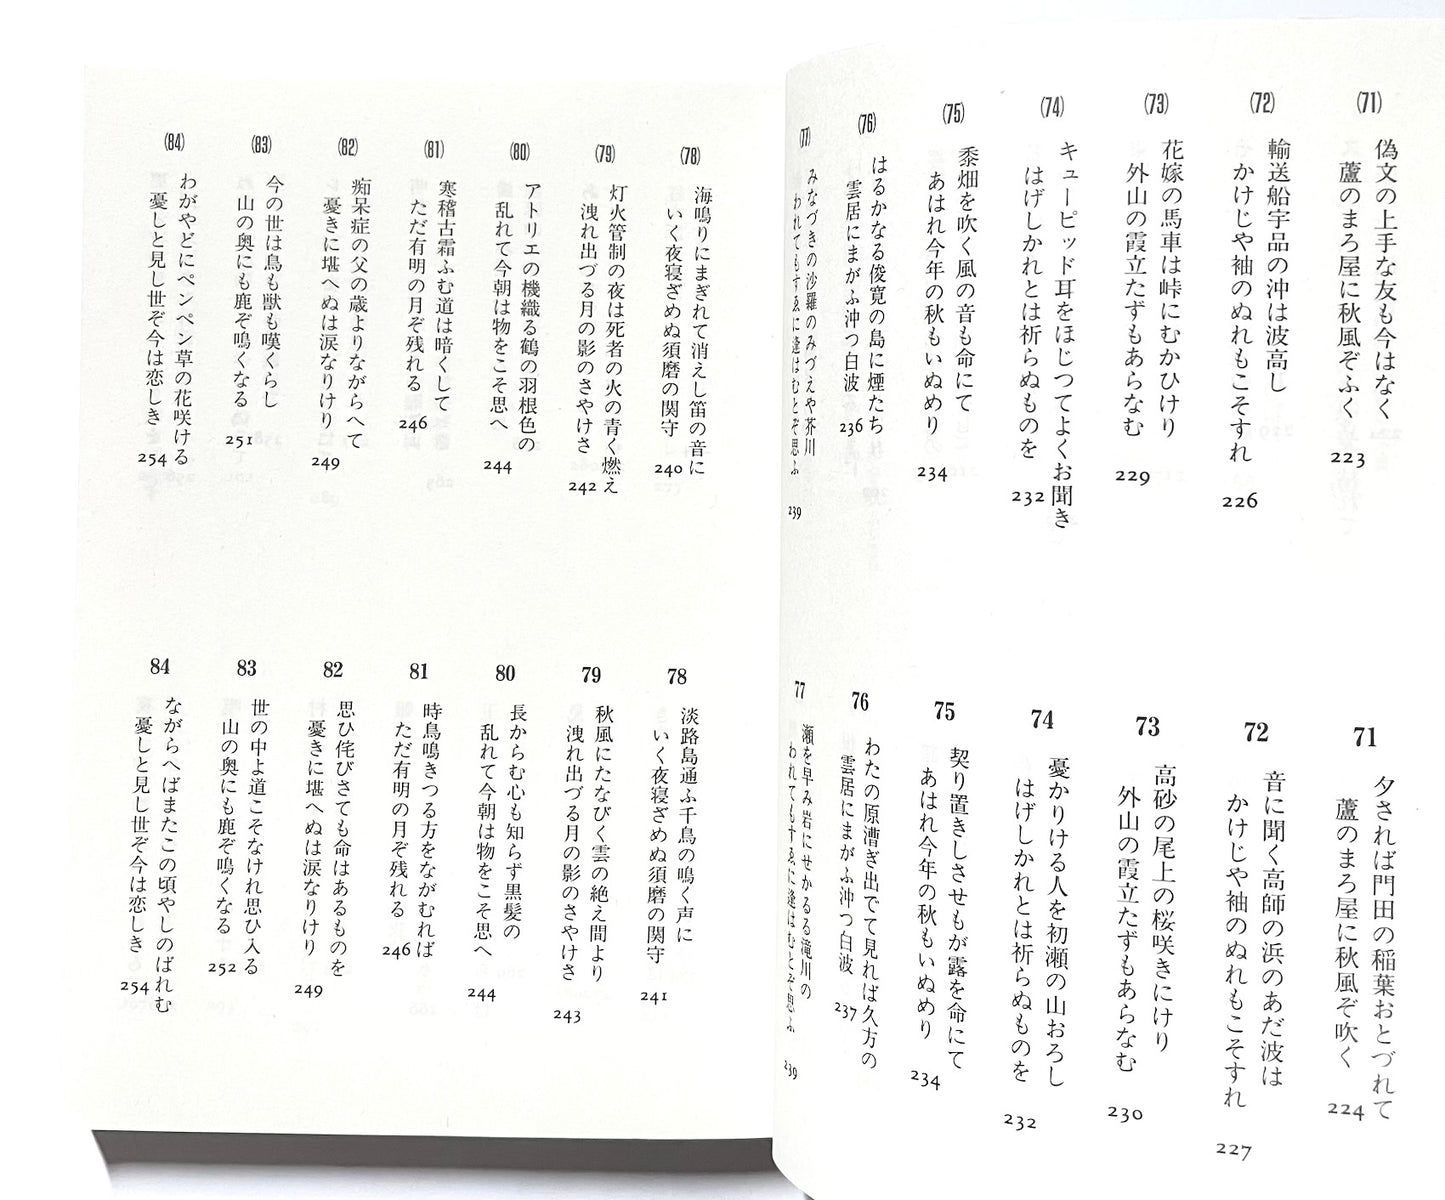 (71)
偽文の上手な友も今はなく
蘆のまろ屋に秋風ぞふく
223
(72)
輸送船宇品の沖は波高し
かけじや袖のぬれもこそすれ
226
(73)
花嫁の馬車は峠にむかひけり
外山の霞立たずもあらなむ
229
(74)
キューピッド耳をほじつてよくお聞き
はげしかれとは祈らぬものを
232
(75)
黍畑を吹く風の音も命にて
あはれ今年の秋もいぬめり
234
(76)
はるかなる俊寛の島に煙たち
雲居にまがふ沖つ白波
236
(77)
みなづきの沙羅のみづえや芥川
われてもすゑに逢はむとぞ思ふ
239
71
夕されば門田の稲葉おとづれて
蘆のまろ屋に秋風ぞ吹く
224
72
音に聞く高師の浜のあだ波は
かけじや袖のぬれもこそすれ
227
73
高砂の尾上の桜咲きにけり
外山の霞立たずもあらなむ
230
74
憂かりける人を初瀬の山おろし
はげしかれとは祈らぬものを
232
75
契り置きしさせもが露を命にて
あはれ今年の秋もいぬめり
234
76
わたの原漕ぎ出でて見れば久方の
雲居にまがふ沖つ白波
237
77
瀬を早み岩にせかるる滝川の
われてもすゑに逢はむとぞ思ふ
239
(78)
海鳴りにまぎれて消えし笛の音に
いく夜寝ざめぬ須磨の関守
240
(79)
灯火管制の夜は死者の火の青く燃え
洩れ出づる月の影のさやけさ
242
(80)
アトリエの機織る鶴の羽根色の
乱れて今朝は物をこそ思へ
244
(81)
寒稽古霜ふむ道は暗くして
ただ有明の月ぞ残れる
246
(82)
痴呆症の父の歳よりながらへて
憂きに堪へぬは涙なりけり
249
(83)
今の世は鳥も獣も嘆くらし
山の奥にも鹿ぞ鳴くなる
251
(84)
わがやどにペンペン草の花咲ける
憂しと見し世ぞ今は恋しき
254
78
淡路島通ふ千鳥の鳴く声に
いく夜寝ざめぬ須磨の関守
241
79
秋風にたなびく雲の絶え間より
洩れ出づる月の影のさやけさ
243
80
長からむ心も知らず黒髪の
乱れて今朝は物をこそ思へ
244
81
時鳥鳴きつる方をながむれば
ただ有明の月ぞ残れる
246
82
思ひ侘びさても命はあるものを
憂きに堪へぬは涙なりけり
249
83
世の中よ道こそなけれ思ひ入る
山の奥にも鹿ぞ鳴くなる
252
84
ながらへばまたこの頃やしのばれむ
憂しと見し世ぞ今は恋しき
254